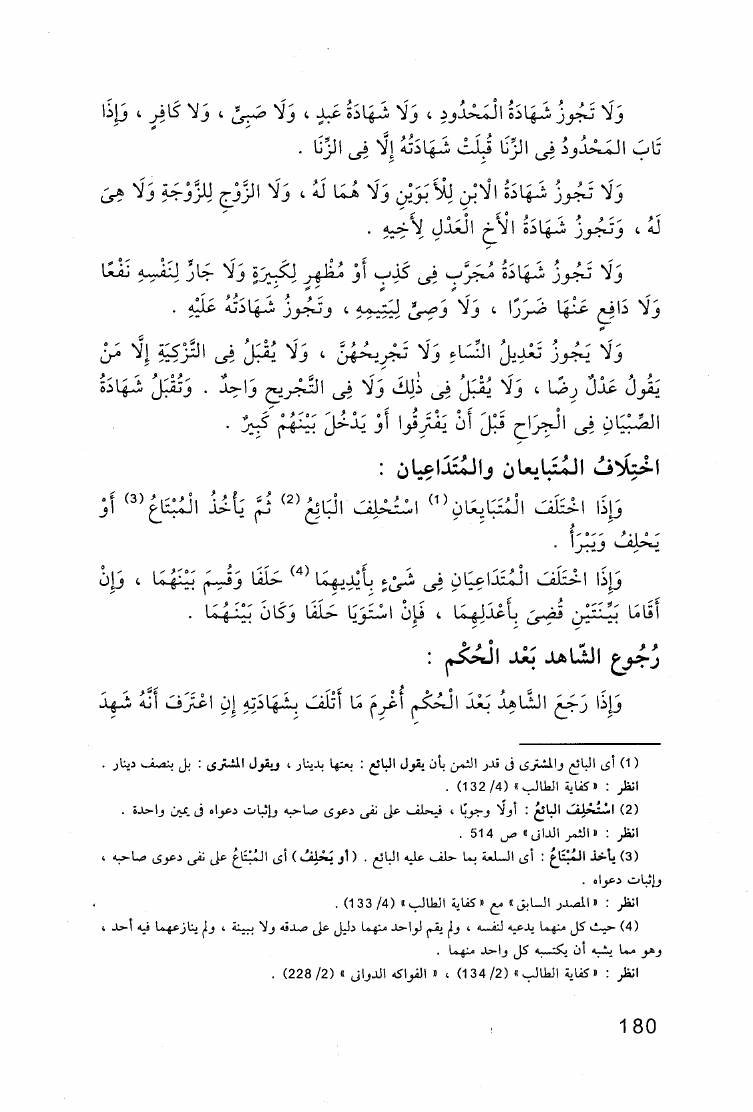 وَلَا تَجُوزُ شَهَادَةُ الْمَحْدُودِ ، وَلَا شَهَادَةُ عَبدٍ ، وَلَا صَبِىٍّ ، وَلَا كَافِرٍ ، وَإِذَا
تَابَ المَحْدُودُ فِى الزِّنَا قُبِلَتْ شَهَادَتُهُ إِلَّا فِى الزِّنَا .
وَلَا تَجُوزُ شَهَادَةُ الْابْنِ لِلْأَبَوَيْنِ وَلَا هُمَا لَهُ ، وَلَا الزَّوْجِ لِلزَّوْجَةِ وَلَا هِىَ
لَهُ ، وَتَجُوزُ شَهَادَةُ الْأَخِ الْعَدْلِ لِأَخِيهِ .
وَلَا تَجُوزُ شَهَادَةُ مُجَرَّبٍ فِى كَذِبٍ أَوْ مُظْهِرٍ لِكَبِيرَةٍ وَلَا جَارٍّ لِنَفْسِهِ نَفْعًا
وَلَا دَافِعٍ عَنْهَا ضَرَرًا ، وَلَا وَصِىٍّ لِيَتِيمِهِ ، وتَجُوزُ شَهَادَتُهُ عَلَيْهِ .
وَلَا يَجُوزُ تَعْدِيلُ النِّسَاءِ وَلَا تَجْرِيحُهُنَّ ، وَلَا يُقْبَلُ فِى التَّزْكِيَةِ إِلَّا مَنْ
يَقُولُ عَدْلٌ رِضًا ، وَلَا يُقْبَلُ فِى ذٰلِكَ وَلَا فِى التَّجْرِيحِ وَاحِدٌ . وَتُقْبَلُ شَهَادَةُ
الصِّبْيَانِ فِى الْجِرَاحِ قَبْلَ أَنْ يَفْتَرِقُوا أَوْ يَدْخُلَ بَيْنَهُمْ كَبِيرٌ .
اخْتِلَافُ المُتَبايعان والمُتَدَاعِيَان :
وَإِذَا اخْتَلَفَ الْمُتَبَايِعَانِ (1) اسْتُحْلِفَ الْبَائِعُ (2) ثُمَّ يَأْخُذُ الْمُبْتَاعُ (3) أَوْ
يَحْلِفُ وَيَبْرَأُ .
وَإِذَا اخْتَلَفَ الْمُتَدَاعِيَانِ فِى شَىْءٍ بِأَيْدِيهِمَا (4) حَلَفَا وَقُسِمَ بَيْنَهُمَا ، وَإِنْ
أَقَامَا بَيِّنَتَيْنِ قُضِىَ بِأَعْدَلِهِمَا ، فَإِنْ اسْتَوَيَا حَلَفَا وَكَانَ بَيْنَهُمَا .
رُجُوع الشّاهد بَعْد الْحُكْم :
وَإِذَا رَجَعَ الشَّاهِدُ بَعْدَ الْحُكْمِ أُغْرِمَ مَا أَتْلَفَ بِشَهَادَتِهِ إِنِ اعْتَرَفَ أَنَّهُ شَهِدَ
(1) أى البائع والمشترى فى قدر الثمن بأن يقول البائع : بعتها بدينار ، ويقول المشترى : بل بنصف دينار .
انظر : « كفاية الطالب » (4/ 132) .
(2) اسْتُحْلِفَ البائعُ : أولًا وجوبًا ، فيحلف على نفى دعوى صاحبه وإثبات دعواه فى يمين واحدة .
انظر : « الثمر الدانى » ص 514 .
(3) يأخذ المُبْتَاعُ : أى السلعة بما حلف عليه البائع . ( أو يَحْلِفُ ) أى المُبْتَاعُ على نفى دعوى صاحبه ،
وإثبات دعواه .
انظر : « المصدر السابق » مع « كفاية الطالب » (4/ 133) .
(4) حيث كل منهما يدعيه لنفسه ، ولم يقم لواحد منهما دليل على صدقه ولا ببينة ، ولم ينازعهما فيه أحد ،
وهو مما يشبه أن يكتسبه كل واحد منهما .
انظر : « كفاية الطالب » (2/ 134) ، « الفواكه الدوانى » (2/ 228) .
180